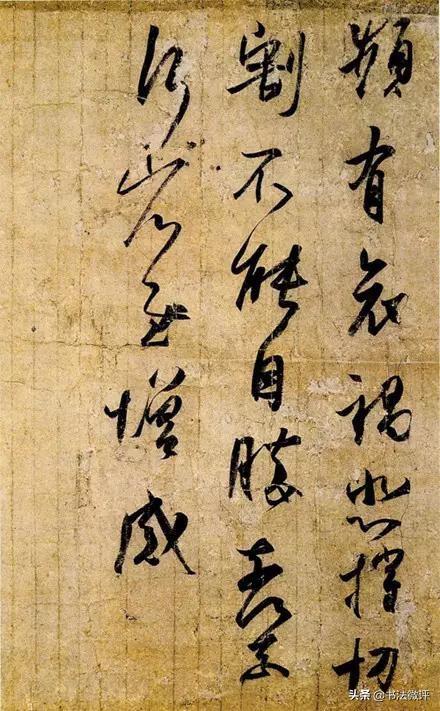 頻有哀禍悲摧切
割不能自勝奈何奈
何省慰增感
头条 @书法微评